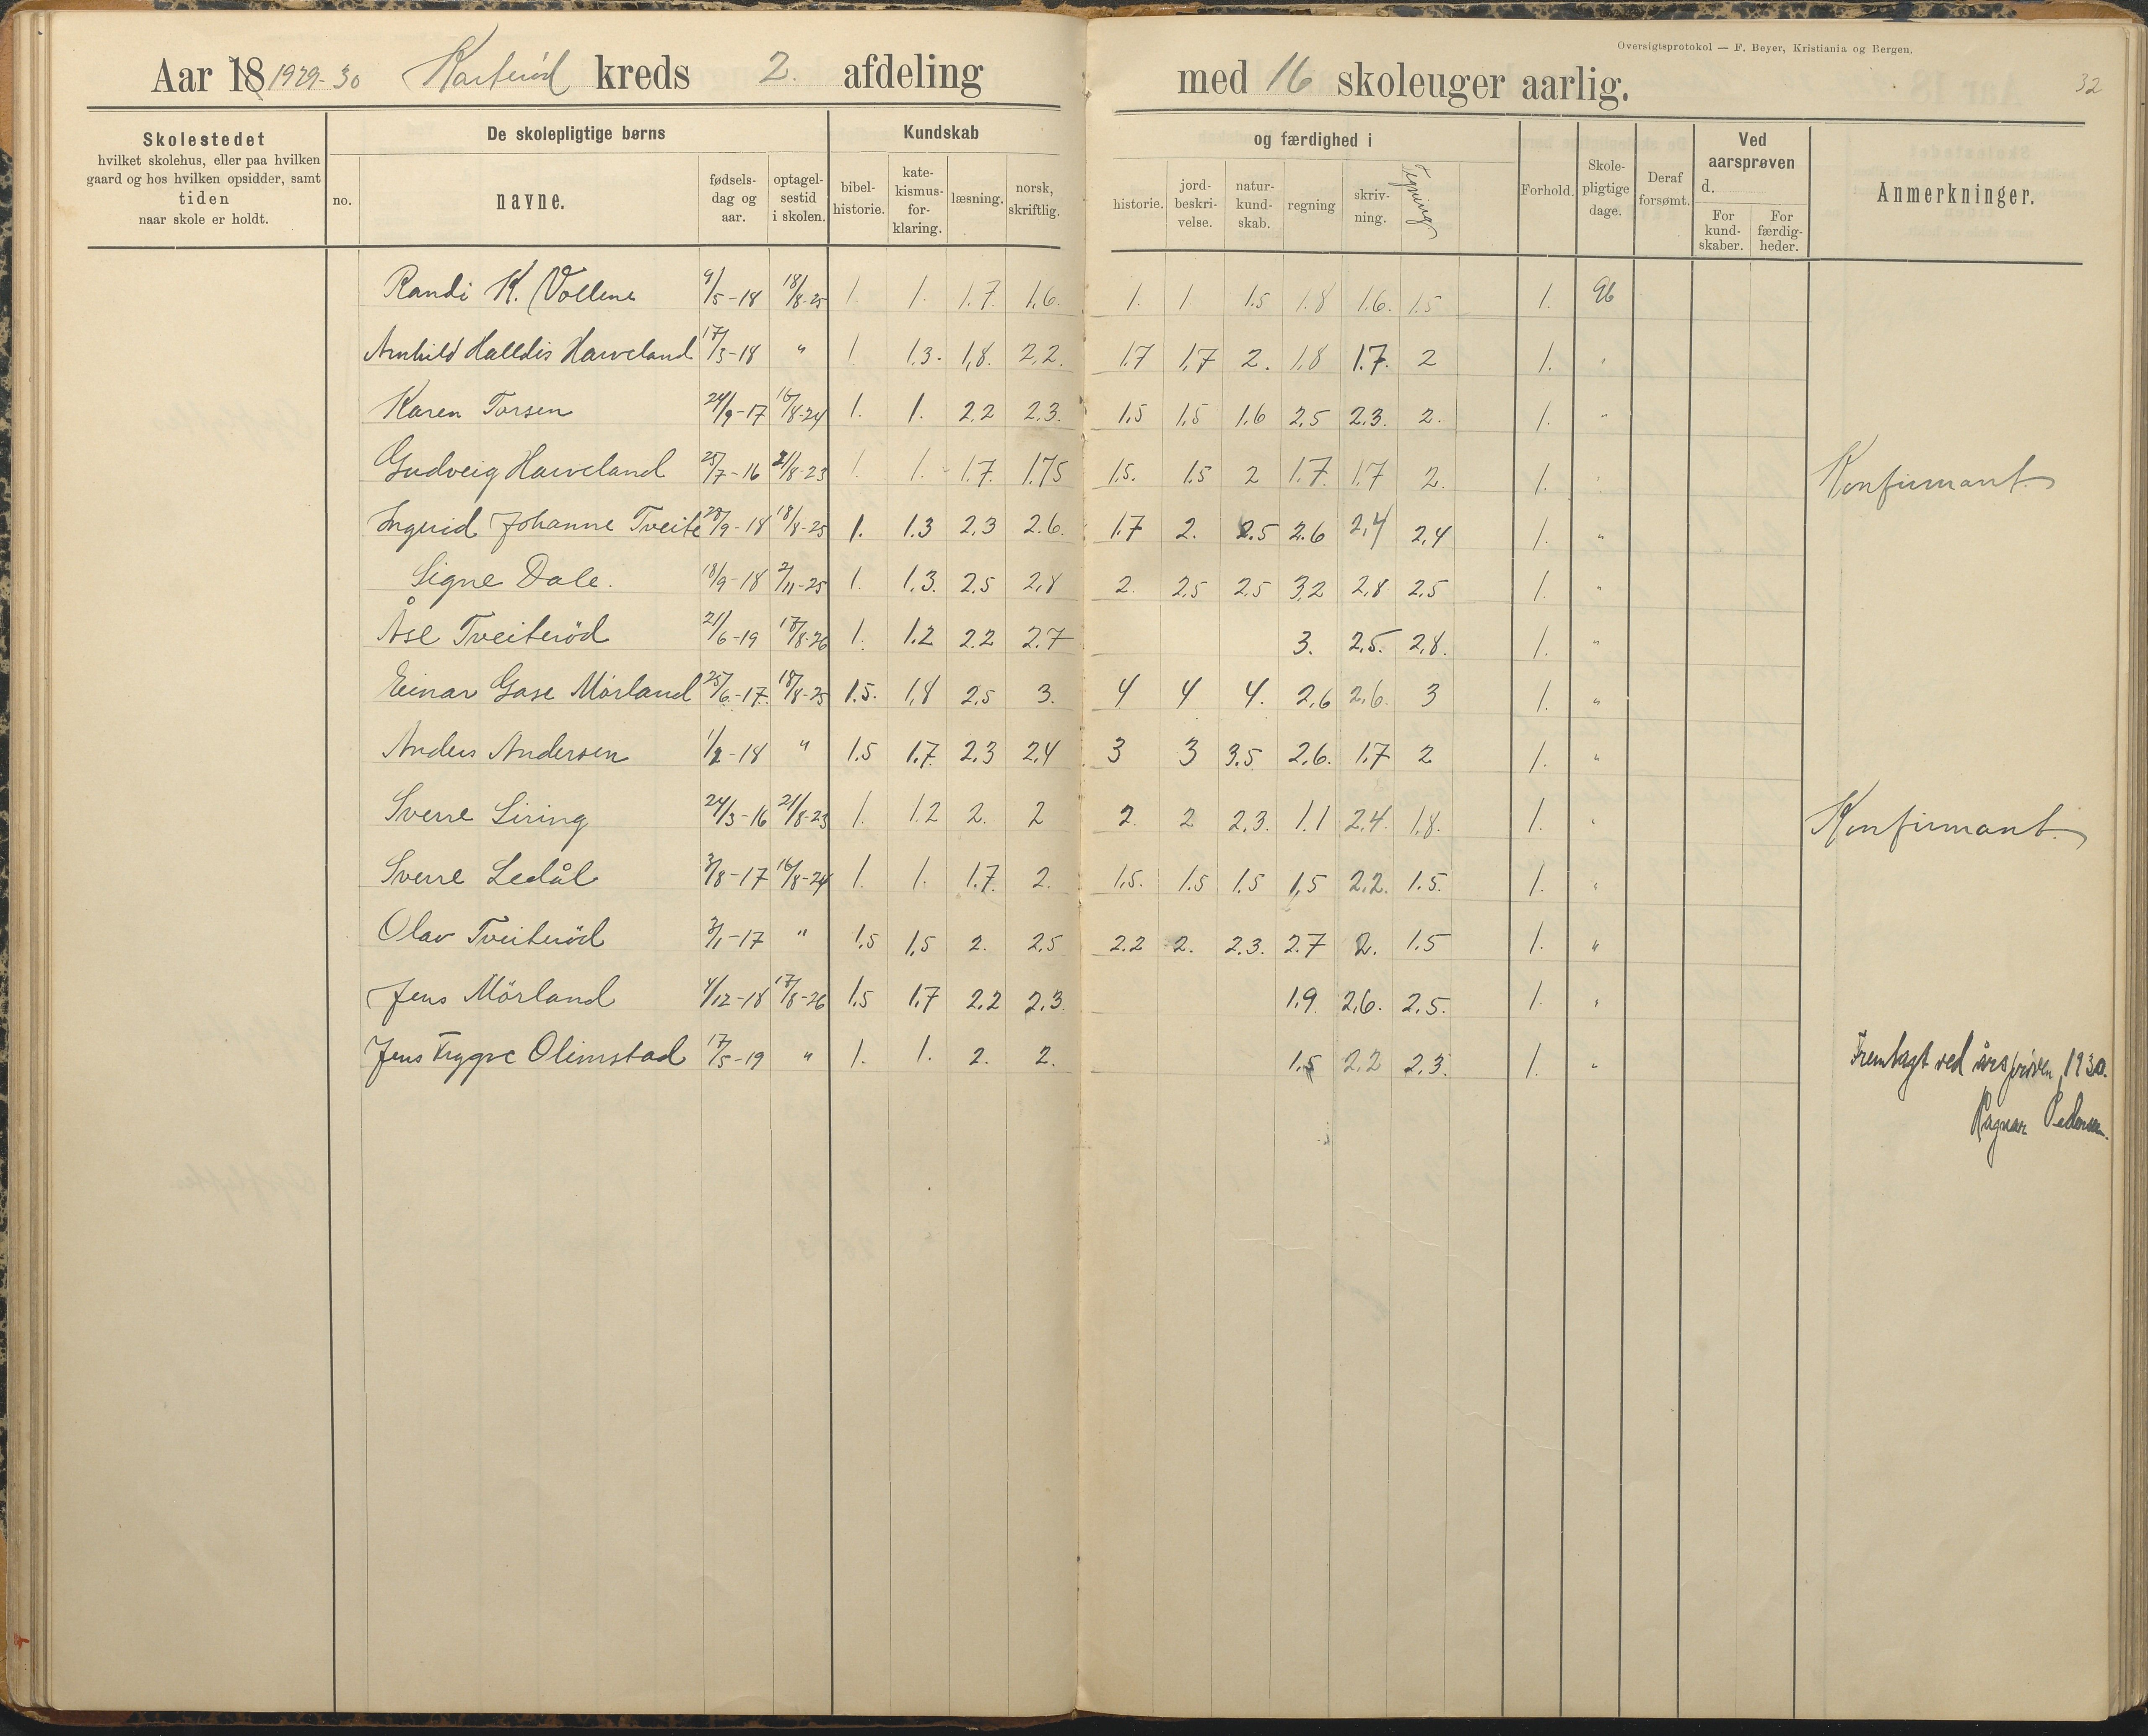 Oversigtsprotokol — F. Beyer, Kristiania og Bergen.
Aar 18 1929-30 Karterød kreds 2. afdeling med 16 skoleuger aarlig. 32
Skolestedet
hvilket skolehus, eller paa hvilken
gaard og hos hvilken opsidder, samt
tiden
naar skole er holdt.
De skolepligtige børns
no.
navne.
fødsels-
dag og
aar.
optagel-
sestid
i skolen.
Kundskab
bibel-
historie.
kate-
kismus-
for-
klaring.
læsning.
norsk,
skriftlig.
og færdighed i
historie.
jord-
beskri-
velse.
natur-
kund-
skab.
regning
skriv-
ning.
Tegning
Forhold.
Skole-
pligtige
dage.
Deraf
forsømt.
Ved
aarsprøven
d.
For
kund-
skaber.
For
færdig-
heder.
Anmerkninger.
Randi K. Vollene 9/5-18 18/8-25 1. 1. 1.7. 1.6. 1. 1. 1.5 1.8 1.6. 1.5 1. 96
Arnhild Halldis Haveland 17/3-18 " 1 1.3. 1,8. 2,2. 1.7 1,7 2. 1,8 1.7. 2 1. "
Karen Torsen 24/9-17 16/8-24 1. 1. 2.2 2.3. 1.5 1,5 1.6 2,5 2.3. 2. 1. "
Gudveig Haveland 25/7-16 21/8-23 1. 1. 1.7. 1.75 1.5. 1.5 2 1.7. 1.7 2. 1. " Konfirmant.
Ingrid Johanne Tveite 28/9-18 18/8-25 1. 1.3 2.3 2.6. 1.7 2. 2.5 2.6 2,4 2,4 1. "
Signe Dale. 18/9-18 2/11-25 1. 1.3. 2.5 2,8 2. 2,5 2,5 3,2 2,8 2,5 1. "
Åse Tveiterød 21/6-19 17/8-26 1. 1.2 2.2 2.7 3. 2,5. 2,8. 1. "
Einar Gase Mørland 25/6-17. 18/8-25 1.5. 1,8 2,5 3. 4 4 4. 2,6 2,6. 3 1. "
Anders Andersen 1/2-18 " 1.5 1.7. 2.3 2,4 3 3 3.5 2.6. 1.7 2 1. "
Sverre Liring 24/3-16 21/8-23 1. 1.2 2. 2 2. 2 2.3. 1.1 2.4. 1.8. 1. " Konfirmant.
Sverre Ledål 3/8-17 16/8-24 1. 1. 1.7. 2. 1.5. 1.5 1.5 1,5 2.2. 1.5. 1. "
Olav Tveiterød 3/1-17 " 1.5 1,5 2. 2,5 2.2 2. 2.3. 2.7 2. 1.5 1. "
Jens Mörland 4/12-18 17/8-26 1.5 1.7 2.2 2.3 1.9. 2,6. 2,5. 1. "
Jens Trygve Olimstad 17/5-19 " 1. 1. 2. 2. 1.5 2.2 2.3. 1. "
Fremlagt ved årsprøven 1930.
Ragnar Pedersen.